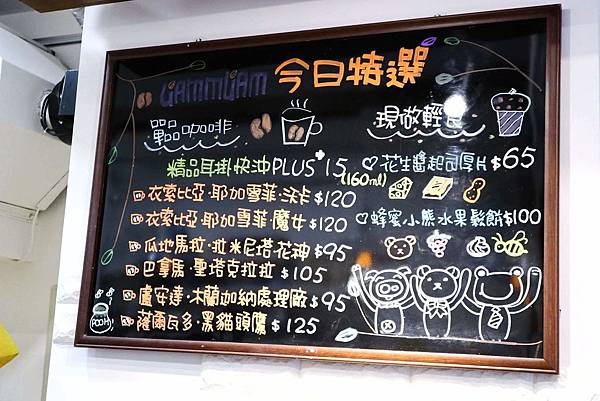 UAMMUAM 今日特選
單品咖啡
精品耳掛快沖PLUS+15
(160ml)
衣索比亞·耶加雪菲·沃卡$120
衣索比亞·耶加雪菲·魔女$120
瓜地馬拉·拉米尼塔花神$95
巴拿馬·聖塔克拉拉$105
盧安達·木蘭珈納處理廠$95
薩爾瓦多·黑貓頭鷹$125
POOH
現做輕食
花生醬起司厚片$65
蜂蜜小熊水果鬆餅$100